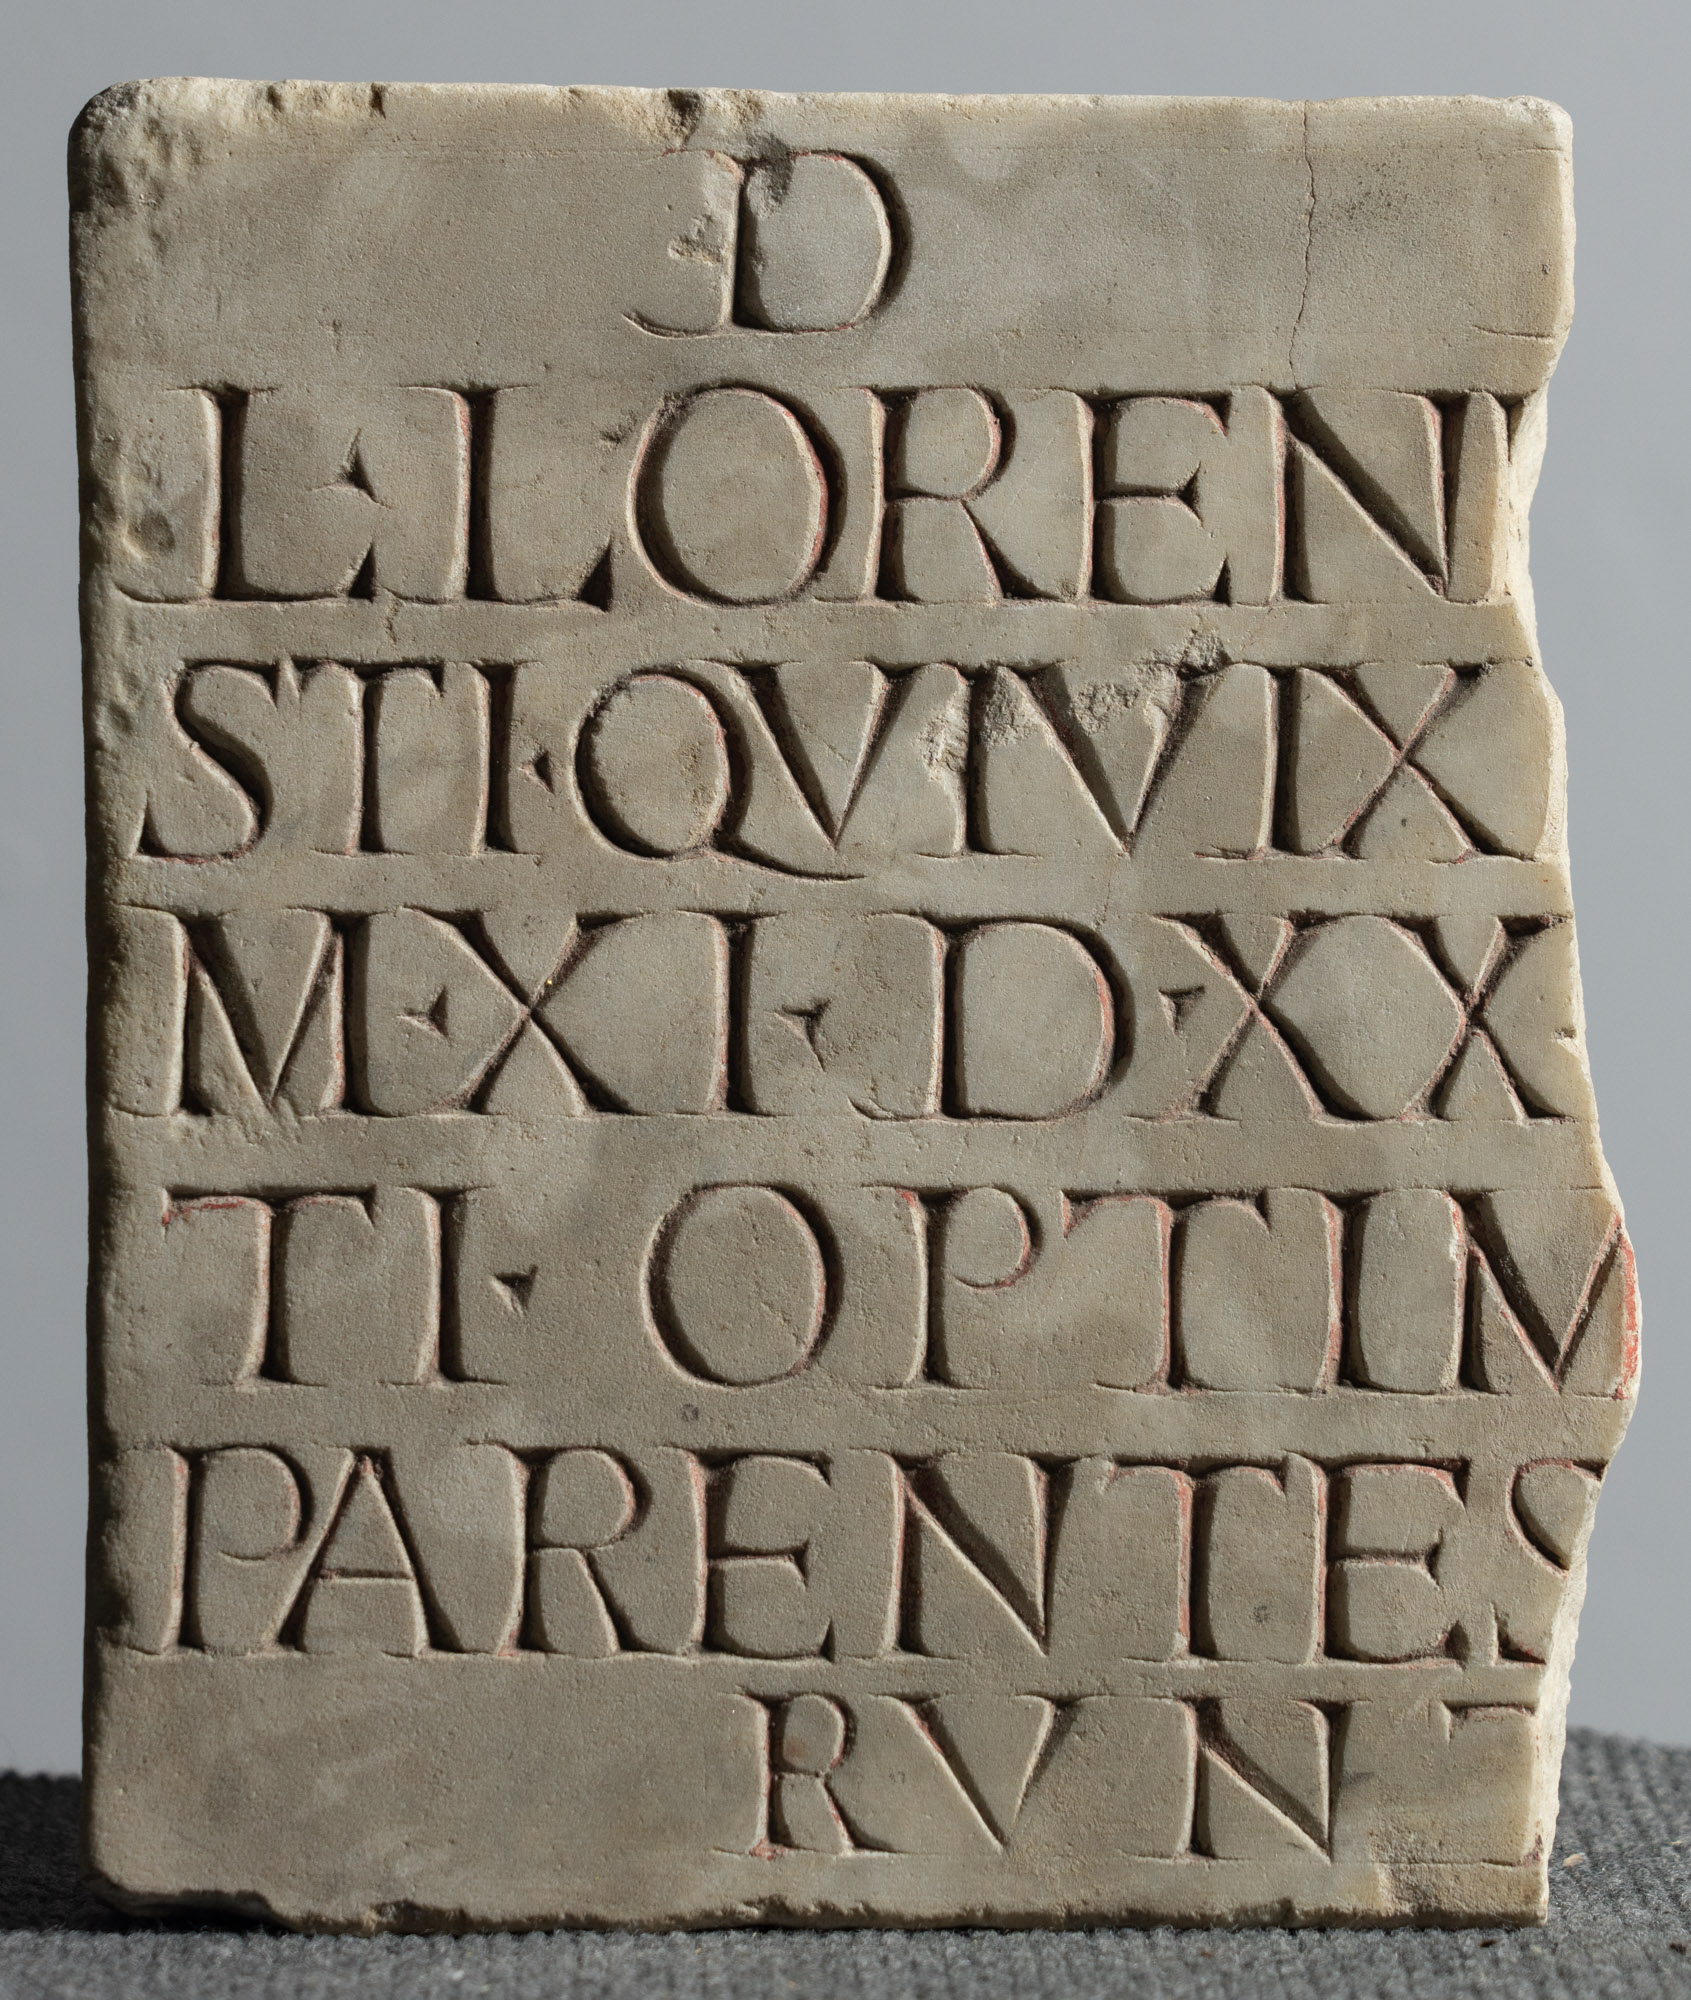 D
L·LOREN
STI·QVIVIX
M·XI·D·XX
TI·OPTIM
PARENTES
RVNT